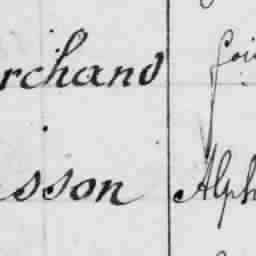 rchand
sson
Alph